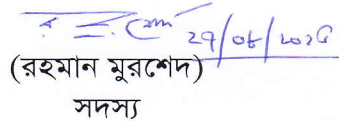 ২৭/০৮/২০২৫
(রহমান মুরশেদ)
সদস্য